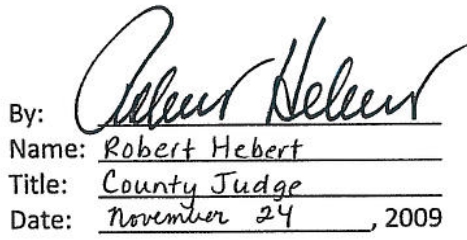 By: Robert Hebert
Name: Robert Hebert
Title: County Judge
Date: November 24, 2009